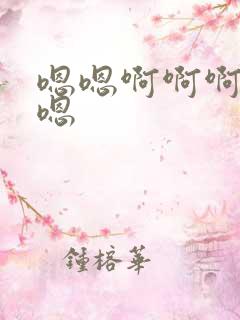 嗯嗯啊啊啊
嗯
鍾榕華